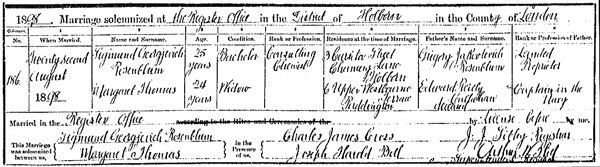 1898. Marriage solemnized at the Register Office in the District of Holborn in the County of London
No. When Married. Name and Surname. Age. Condition. Rank or Profession. Residence at the time of Marriage. Father's Name and Surname. Rank or Profession of Father.
186 Twenty second August 1898 Sigmund Georgjevich Rosenblum 25 years Bachelor Consulting Chemist 3 Cursitor Street Chancery Lane Holborn Gregory Jakovlevich Rosenblum Landed Proprietor
Margaret Thomas 24 years Widow 6 Upper Westbourne Terrace Paddington Edward Reilly Callahan deceased Captain in the Navy
Married in the Register Office according to the Rites and Ceremonies of the by License before by me,
This Marriage was solemnized between us, Sigmund Georgjevich Rosenblum Margaret Thomas in the Presence of us, Charles James Cross Joseph Harold Bell Registrar Superintendent Registrar